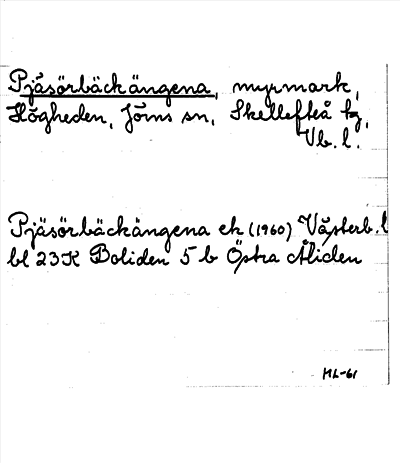 Pjäsörbäckängena, myrmark,
Högheden, Jörns sn, Skellefteå kg,
Vb. l.
Pjäsörbäckängena ek (1960) Västerb. l
bl 23K Boliden 5 b Östra Åliden
ML-61